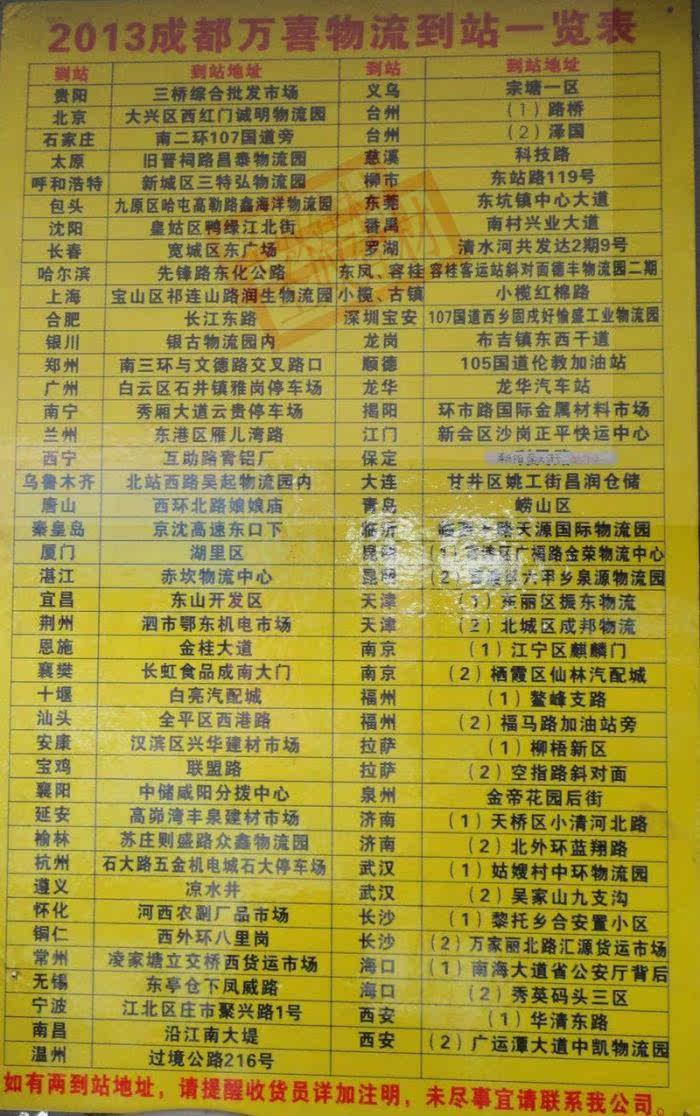 2013成都万喜物流到站一览表
到站 到站地址 到站 到站地址
贵阳 三桥综合批发市场 义乌 宗塘一区
北京 大兴区西红门诚明物流园 台州 (1)路桥
石家庄 南二环107国道旁 台州 (2)泽国
太原 旧晋祠路昌泰物流园 慈溪 科技路
呼和浩特 新城区三特弘物流园 柳市 东站路119号
包头 九原区哈屯高勒路鑫海洋物流园 东莞 东坑镇中心大道
沈阳 皇姑区鸭绿江北街 番禺 南村兴业大道
长春 宽城区东广场 罗湖 清水河共发达2期9号
哈尔滨 先锋路东化公路 东凤、容桂 容桂客运站斜对面德丰物流园二期
上海 宝山区祁连山路润生物流园 小榄、古镇 小榄红棉路
合肥 长江东路 深圳宝安 107国道西乡固戍好愉盛工业物流园
银川 银古物流园内 龙岗 布吉镇东西干道
郑州 南三环与文德路交叉路口 顺德 105国道伦教加油站
广州 白云区石井镇雅岗停车场 龙华 龙华汽车站
南宁 秀厢大道云贵停车场 揭阳 环市路国际金属材料市场
兰州 东港区雁儿湾路 江门 新会区沙岗正平快运中心
西宁 互助路青铝厂 保定
乌鲁木齐 北站西路吴起物流园内 大连 甘井区姚工街昌润仓储
唐山 西环北路娘娘庙 青岛 崂山区
秦皇岛 京沈高速东口下 临沂 路天源国际物流园
厦门 湖里区 昆明 (1) 区广福路金荣物流中心
湛江 赤坎物流中心 昆明 (2) 六甲乡泉源物流园
宜昌 东山开发区 天津 (1)东丽区振东物流
荆州 泗市鄂东机电市场 天津 (2)北城区成邦物流
恩施 金桂大道 南京 (1)江宁区麒麟门
襄樊 长虹食品成南大门 南京 (2)栖霞区仙林汽配城
十堰 白亮汽配城 福州 (1)鳌峰支路
汕头 全平区西港路 福州 (2)福马路加油站旁
安康 汉滨区兴华建材市场 拉萨 (1)柳梧新区
宝鸡 联盟路 拉萨 (2)空指路斜对面
襄阳 中储咸阳分拨中心 泉州 金帝花园后街
延安 高峁湾丰泉建材市场 济南 (1)天桥区小清河北路
榆林 苏庄则盛路众鑫物流园 济南 (2)北外环蓝翔路
杭州 石大路五金机电城石大停车场 武汉 (1)姑嫂村中环物流园
遵义 凉水井 武汉 (2)吴家山九支沟
怀化 河西农副厂品市场 长沙 (1)黎托乡合安置小区
铜仁 西外环八里岗 长沙 (2)万家丽北路汇源货运市场
常州 凌家塘立交桥西货运市场 海口 (1)南海大道省公安厅背后
无锡 东亭仓下凤威路 海口 (2)秀英码头三区
宁波 江北区庄市聚兴路1号 西安 (1)华清东路
南昌 沿江南大堤 西安 (2)广运潭大道中凯物流园
温州 过境公路216号
如有两到站地址，请提醒收货员详加注明，未尽事宜请联系我公司。